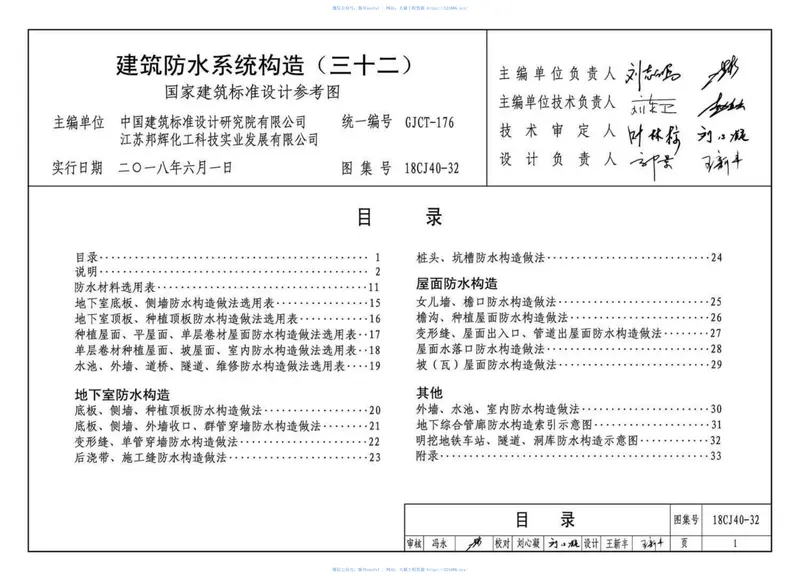 建筑防水系统构造（三十二）
国家建筑标准设计参考图
主编单位 中国建筑标准设计研究院有限公司
江苏邦辉化工科技实业发展有限公司
统一编号 GJCT-176
实行日期 二〇一八年六月一日
图集号 18CJ40-32
主编单位负责人
主编单位技术负责人
技术审定人
设计负责人
目 录
目录 1
说明 2
防水材料选用表 11
地下室底板、侧墙防水构造做法选用表 15
地下室顶板、种植顶板防水构造做法选用表 16
种植屋面、平屋面、单层卷材屋面防水构造做法选用表 17
单层卷材种植屋面、坡屋面、室内防水构造做法选用表 18
水池、外墙、道桥、隧道、维修防水构造做法选用表 19
地下室防水构造
底板、侧墙、种植顶板防水构造做法 20
底板、侧墙、外墙收口、群管穿墙防水构造做法 21
变形缝、单管穿墙防水构造做法 22
后浇带、施工缝防水构造做法 23
桩头、坑槽防水构造做法 24
屋面防水构造
女儿墙、檐口防水构造做法 25
檐沟、种植屋面防水构造做法 26
变形缝、屋面出入口、管道出屋面防水构造做法 27
屋面水落口防水构造做法 28
坡（瓦）屋面防水构造做法 29
其他
外墙、水池、室内防水构造做法 30
地下综合管廊防水构造索引示意图 31
明挖地铁车站、隧道、洞库防水构造示意图 32
附录 33
目 录 图集号 18CJ40-32
审核 冯永 校对 刘心凝 设计 王新丰 页 1